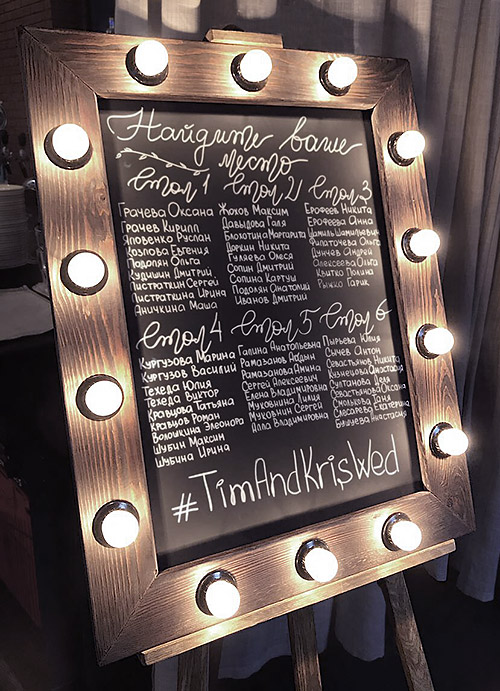 Найдите ваше
место
Стол 1
Грачева Оксана
Грачев Кирилл
Яловенко Руслан
Козлова Евгения
Подолян Ольга
Кудишин Дмитрий
Листраткин Сергей
Листраткина Ирина
Аничкина Маша
Стол 2
Жохов Максим
Давыдова Галя
Маргарита
Доркин Никита
Гуляева Олеся
Сопин Дмитрий
Сопина Картуш
Подолян Анатолий
Иванов Дмитрий
Стол 3
Ерофеев Никита
Ерофеева Анна
Шамиль Шамильевич
Филаточева Ольга
Дунаев Андрей
Алексеева Ольга
Квитко Полина
Рыжко Гарик
Стол 4
Кургузова Марина
Кургузов Василий
Техеда Юлия
Техеда Виктор
Кравцова Татьяна
Кравцов Роман
Волошкина Элеонора
Шубин Максим
Шубина Ирина
Стол 5
Галина Анатольевна
Рамазанов Айдын
Рамазанова Амина
Сергей Алексеевич
Елена Владимировна
Муковнина Лилия
Муковнин Сергей
Алла Владимировна
Стол 6
Пырьева Юлия
Сычев Антон
Севастьянов Никита
Анастасия
Султанова Деля
Севастьянова Оксана
Смолькова Даня
Слесарева Екатерина
Анастасия
#TimAndKrisWed